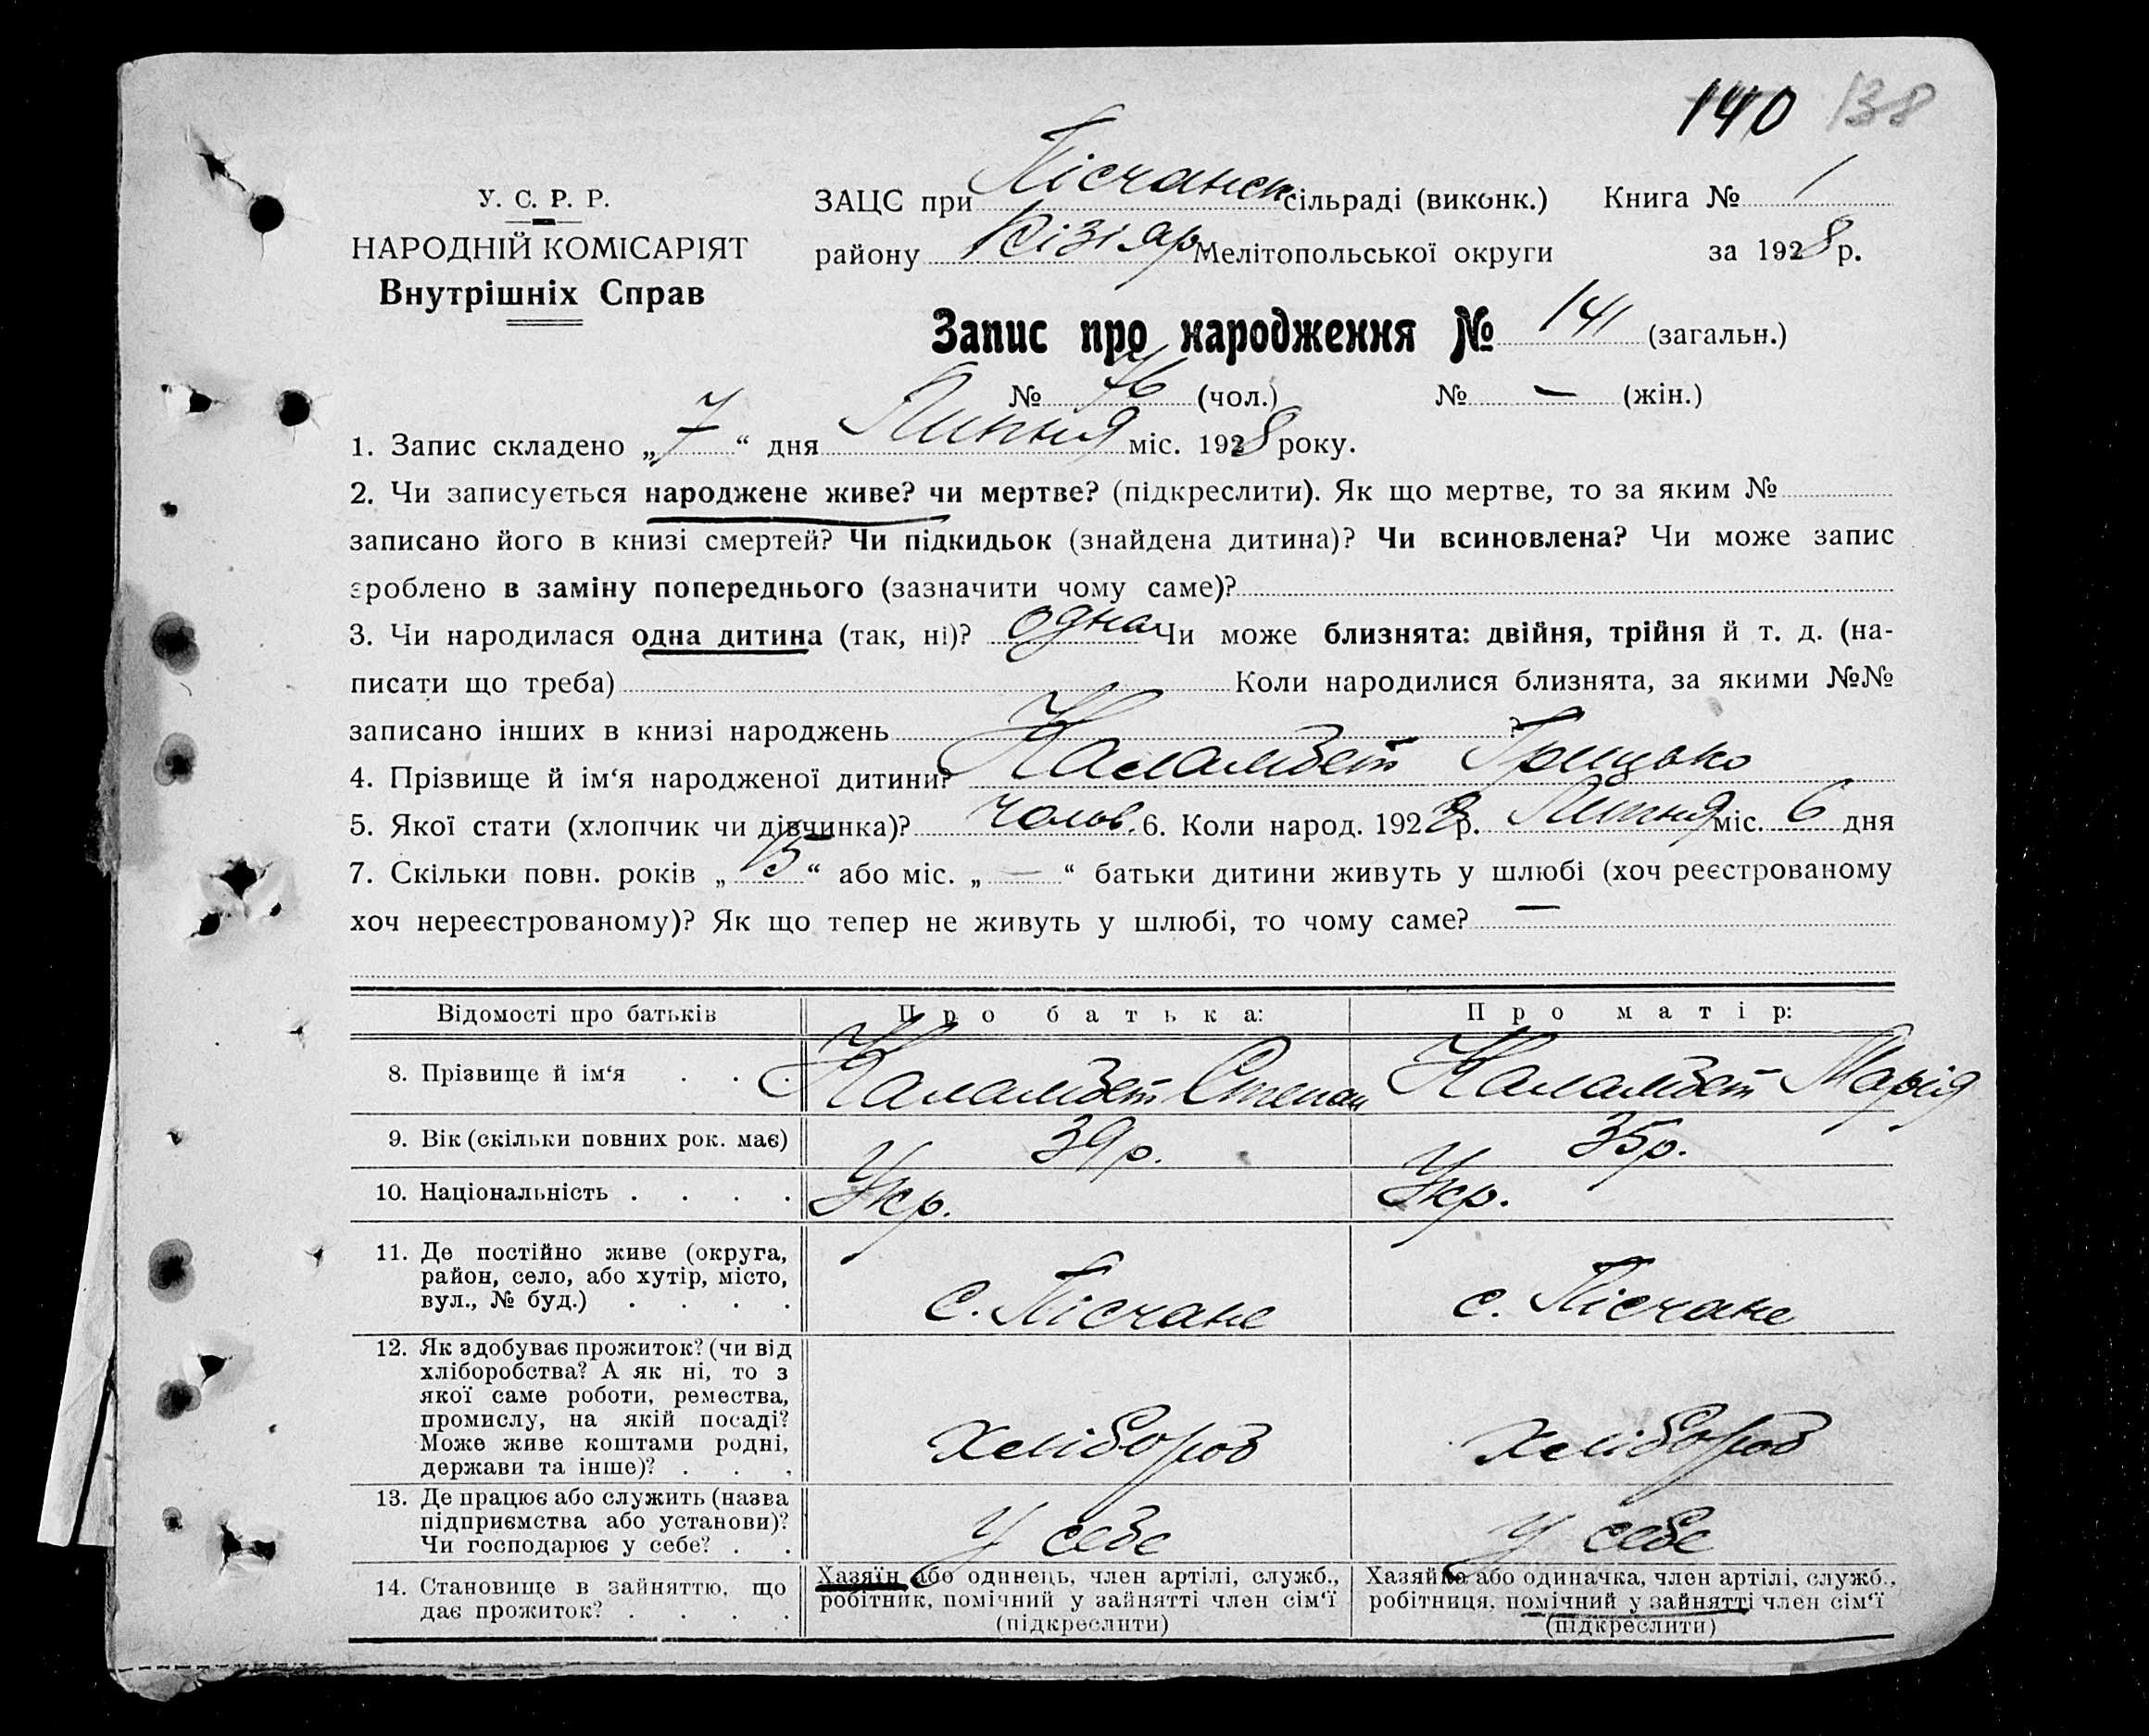 140 138
У. С. Р. Р.
НАРОДНІЙ КОМІСАРІЯТ
Внутрішніх Справ
ЗАЦС при Пісчанск сільраді (виконк.) Книга № 1
району Кізіяр Мелітопольської округи за 1928 р.
Запис про народження № 141 (загальн.)
№ 76 (чол.) № — (жін.)
1. Запис складено „7“ дня Липня міс. 1928 року.
2. Чи записується народжене живе? чи мертве? (підкреслити). Як що мертве, то за яким №
записано його в книзі смертей? Чи підкидьок (знайдена дитина)? Чи всиновлена? Чи може запис
зроблено в заміну попереднього (зазначити чому саме)?
3. Чи народилася одна дитина (так, ні)? одна Чи може близнята: двійня, трійня й т. д. (на-
писати що треба) Коли народилися близнята, за якими №№
записано інших в книзі народжень ?
4. Прізвище й ім‘я народженої дитини? Каламбет Грицько
5. Якої стати (хлопчик чи дівчинка)? чолов. 6. Коли народ. 1928 р. Липня міс. 6 дня
7. Скільки повн. років „15“ або міс. „—“ батьки дитини живуть у шлюбі (хоч реєстрованому
хоч нереєстрованому)? Як що тепер не живуть у шлюбі, то чому саме? —
Відомості про батьків Про батька: Про матір:
8. Прізвище й ім‘я . . . Каламбет Степан Каламбет Марія
9. Вік (скільки повних рок. має) 39 р. 35 р.
10. Національність . . . . Укр. Укр.
11. Де постійно живе (округа,
район, село, або хутір, місто,
вул., № буд.) . . . . с. Пісчане с. Пісчане
12. Як здобуває прожиток? (чи від
хліборобства? А як ні, то з
якої саме роботи, ремества,
промислу, на якій посаді?
Може живе коштами родні,
держави та інше)? . . . Хлібороб Хлібороб
13. Де працює або служить (назва
підприємства або установи)?
Чи господарює у себе? . . У себе У себе
14. Становище в зайняттю, що
дає прожиток? . . . .
Хазяїн або одинець, член артілі, служб.,
робітник, помічний у зайнятті член сім‘ї
(підкреслити)
Хазяйка або одиначка, член артілі, служб.,
робітниця, помічний у зайнятті член сім‘ї
(підкреслити)